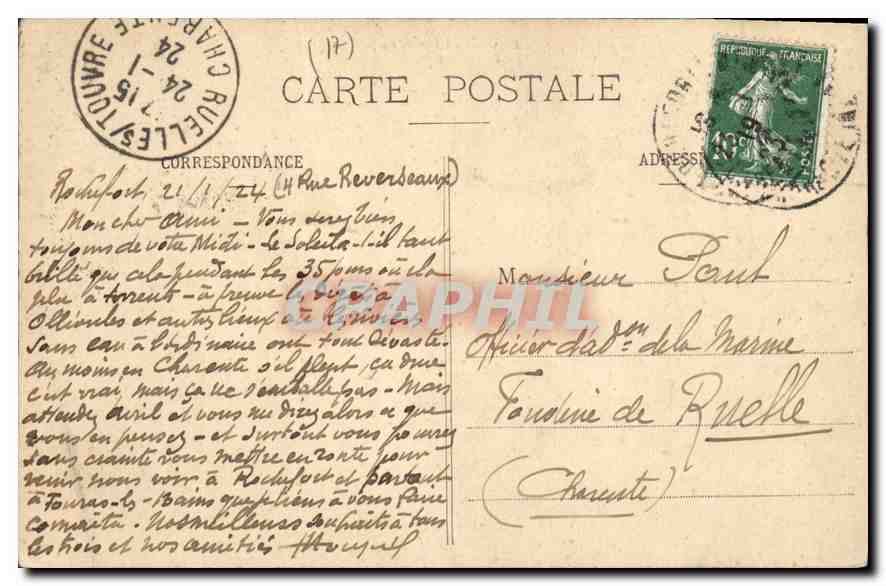 RUELLES/TOUVRE
CHARENTE
7 15
24 - 1
24
(17)
CARTE POSTALE
REPUBLIQUE FRANÇAISE
10c
POSTES
CORRESPONDANCE
ADRESSE
Rochefort 21/1/24 (4 Rue Reverseaux)
Mon cher ami - Vous
toujours de votre Midi - Le Soleil a-t-il tant
brillé que cela pendant les 35 jours où il a
plu à torrents - à preuve à
Ollioules et autres lieux où les rivières
sans eau à l'ordinaire ont tout dévasté -
Au moins en Charente s'il pleut, ça dure
c'est vrai, mais ça ne s'emballe pas - Mais
attendez avril et vous me direz alors ce que
vous en pensez - et surtout vous pourrez
sans crainte vous mettre en route pour
venir nous voir à Rochefort et partout
à Fouras-les-Bains que je tiens à vous faire
connaître. Nos meilleurs souhaits à tous
les trois et nos amitiés
Monsieur Pont
Officier d'adon de la Marine
Fonderie de Ruelle
(Charente)
CPAPHIL